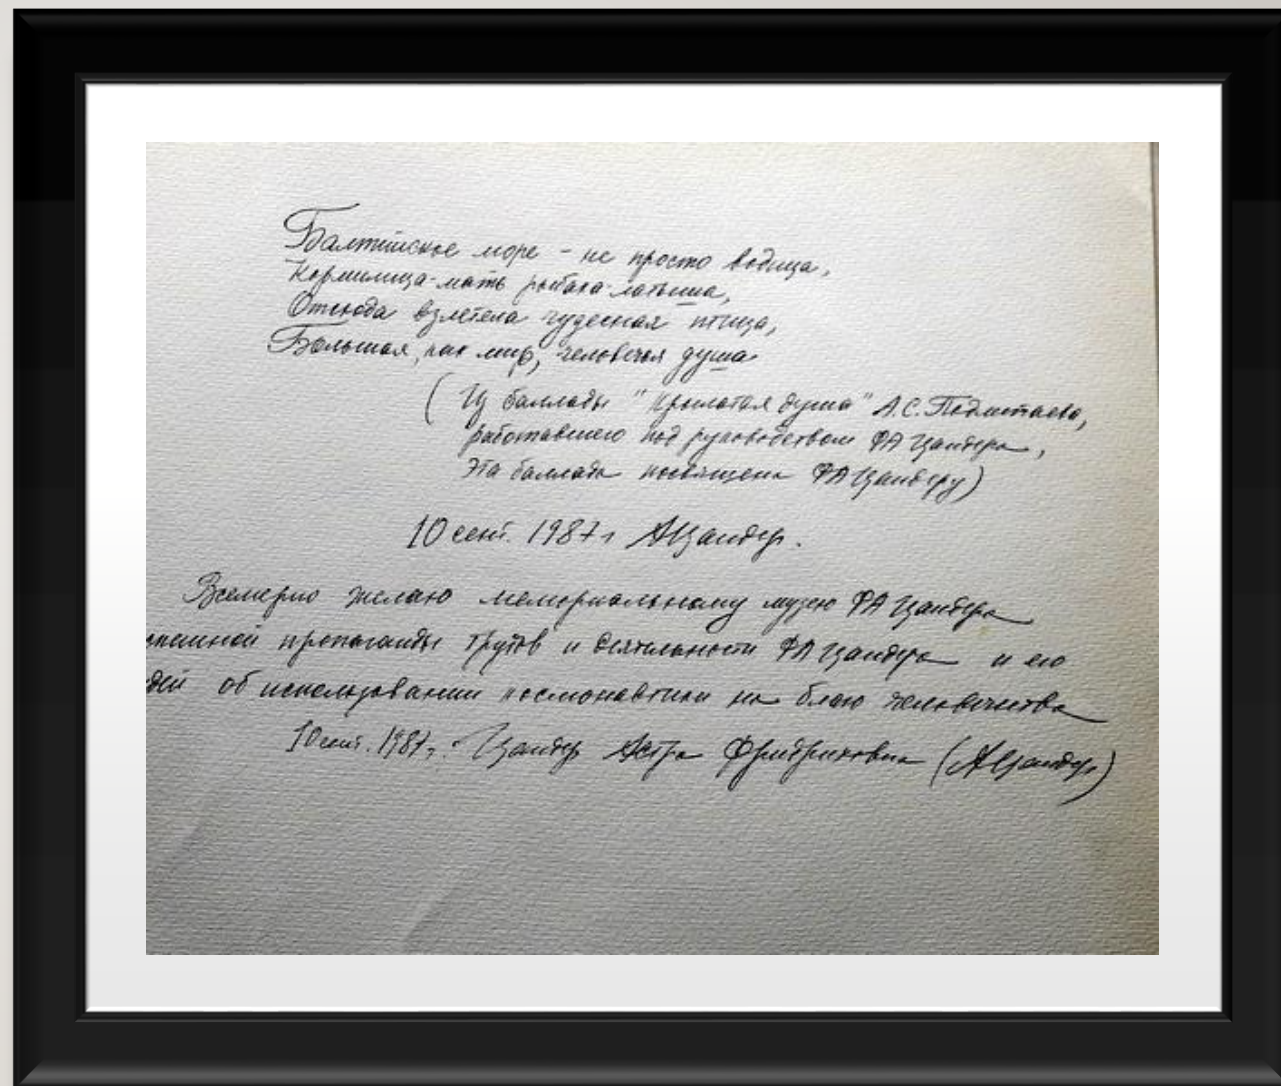 Балтийское море - не просто водица,
Кормилица-мать рыбака-латыша,
Отсюда взлетела чудесная птица,
Большая, как мир, человечья душа
(Из баллады "Крылатая душа" А.С.
работавшего под руководством ФА Цандера,
Эта баллада посвящена ФА Цандеру)
10 сент. 1987 г АЦандер.
Всемерно желаю мемориальному музею ФА Цандера
пропаганды трудов и деятельности ФА Цандера и его
дей об использовании космонавтики на благо человечества
10 сент. 1987 г. Цандер Астра Фридриховна (АЦандер)